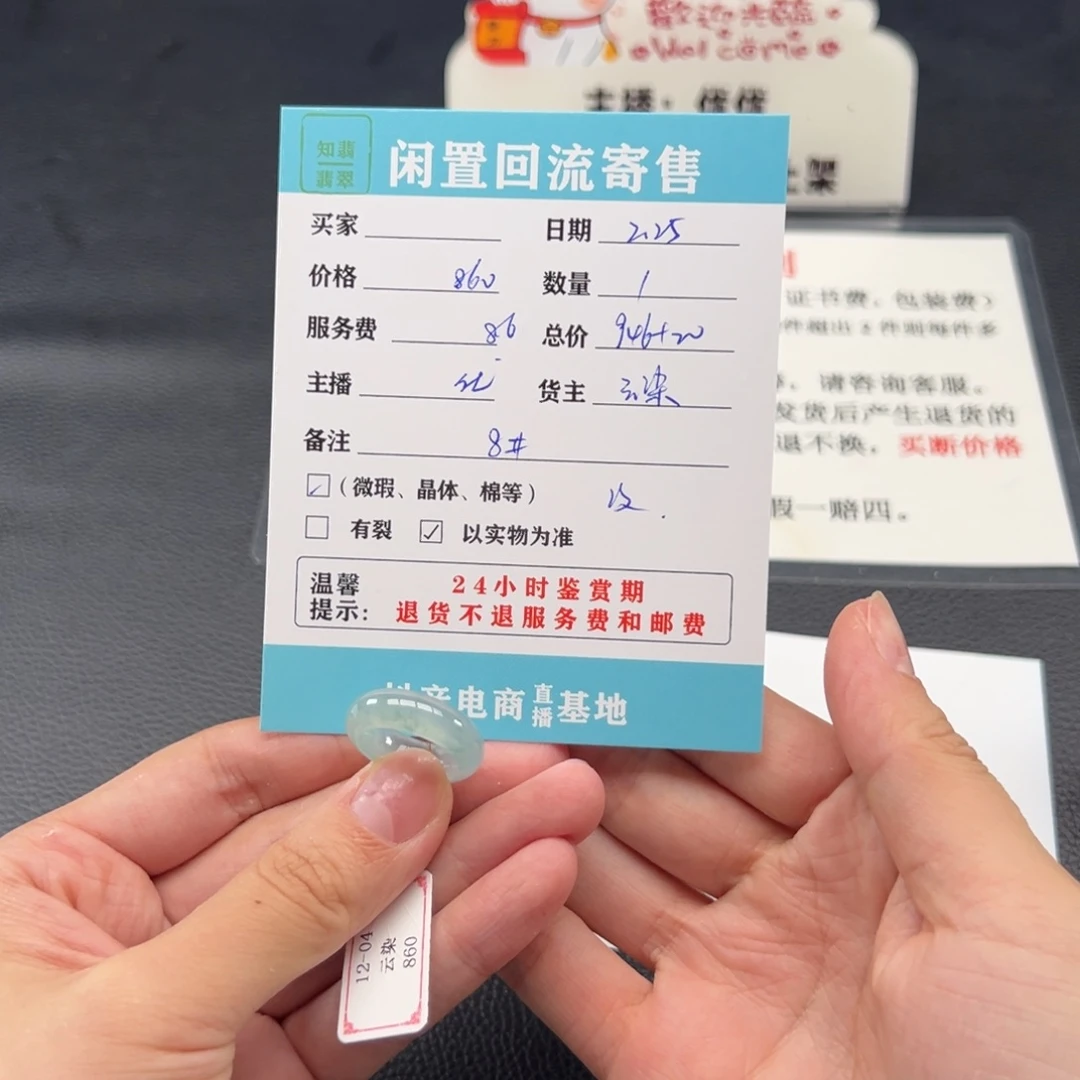 歡迎光臨
Welcome
主播：优优
上架
知翡
翡翠
闲置回流寄售
买家 日期 2.25
价格 860 数量 1
服务费 86 总价 946+20
主播 货主 云染
备注 8#
（微瑕、晶体、棉等） 没.
有裂 以实物为准
温馨提示：
24小时鉴赏期
退货不退服务费和邮费
抖音电商直播基地
证书费，包装费）
件超出 件则每件多
请咨询客服。
发货后产生退货的
退不换，买断价格
假一赔四。
12-04
云染
860